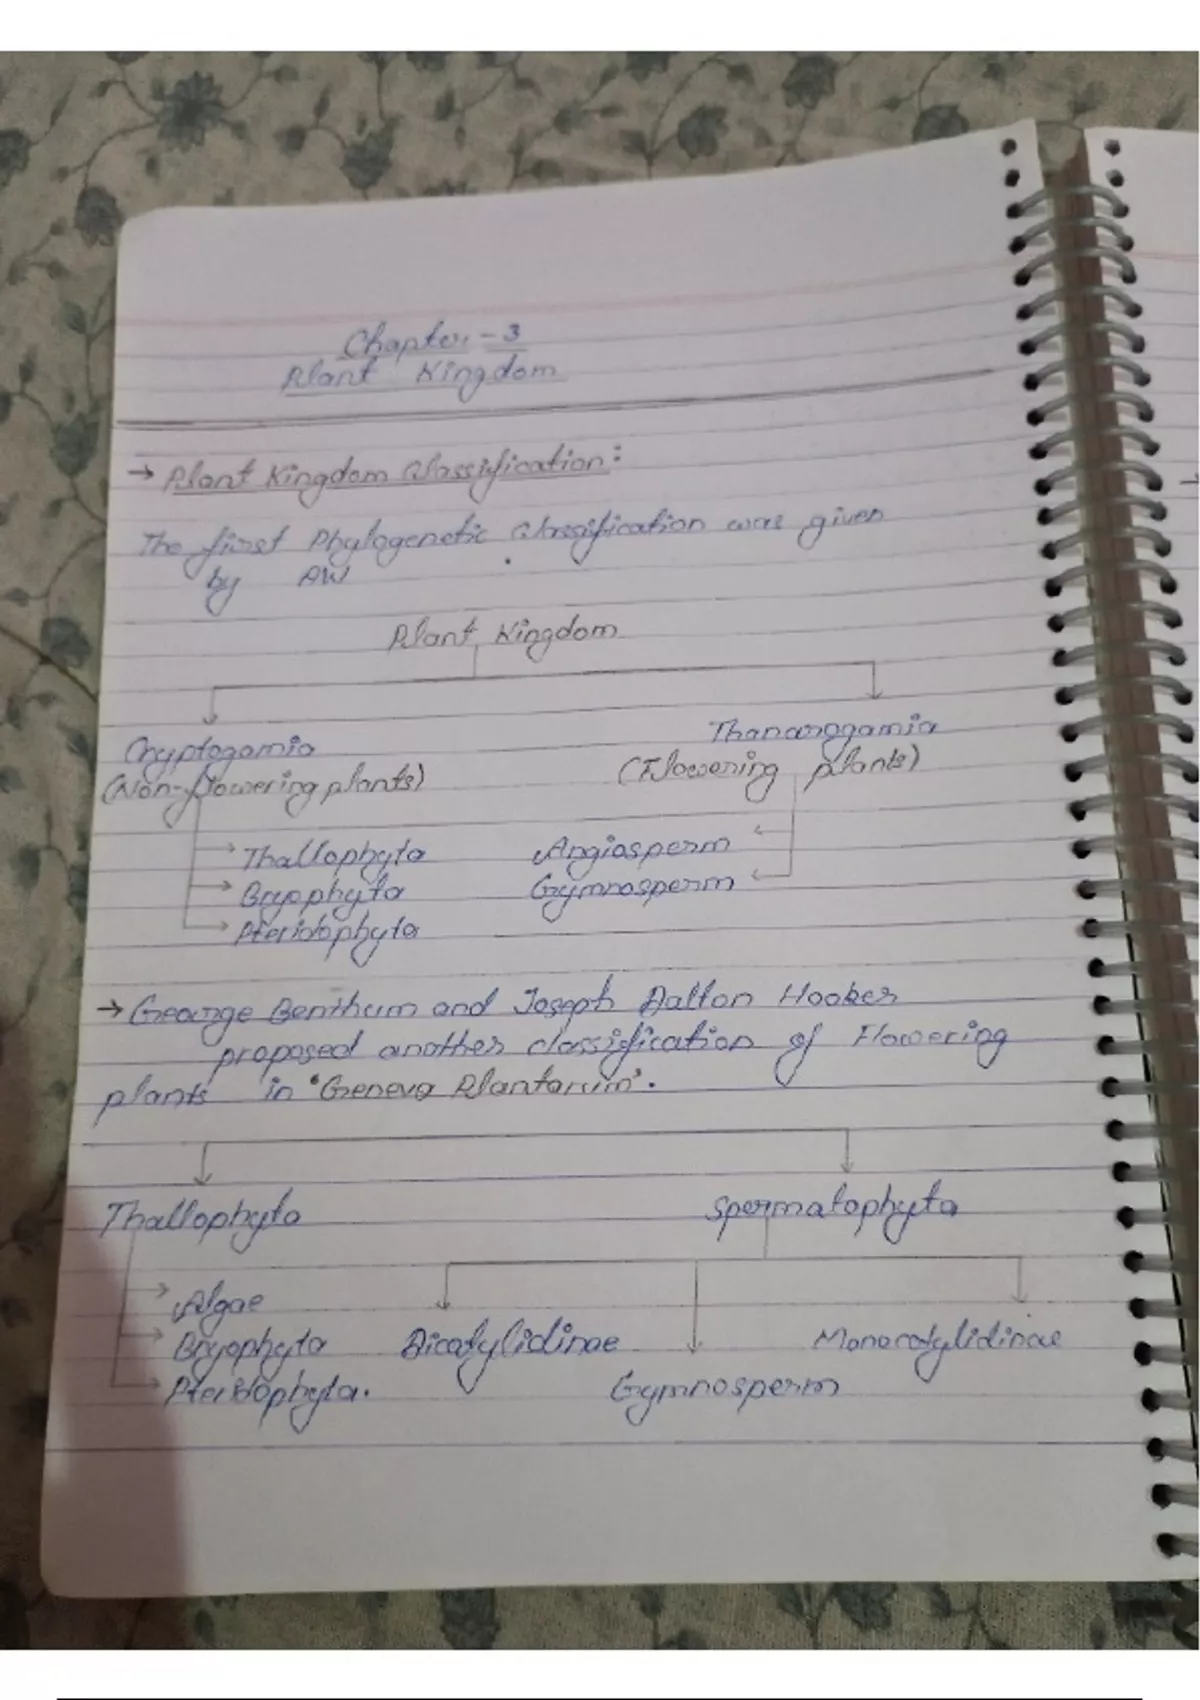 Chapter - 3
Plant Kingdom
→ Plant Kingdom Classification:
The first Phylogenetic classification was given
by AW
Plant Kingdom
Cryptogamia
Thanarogamia
(Non-flowering plants)
(Flowering plants)
→ Thallophyta
Angiosperm
→ Bryophyta
Gymnosperm
→ Pteridophyta
→ George Benthum and Joseph Dalton Hooker
proposed another classification of Flowering
plants in 'Geneva Plantarum'.
Thallophyta
Spermatophyta
→ Algae
→ Bryophyta
Dicotylidinae
Monocotylidinae
→ Pteridophyta.
Gymnosperm